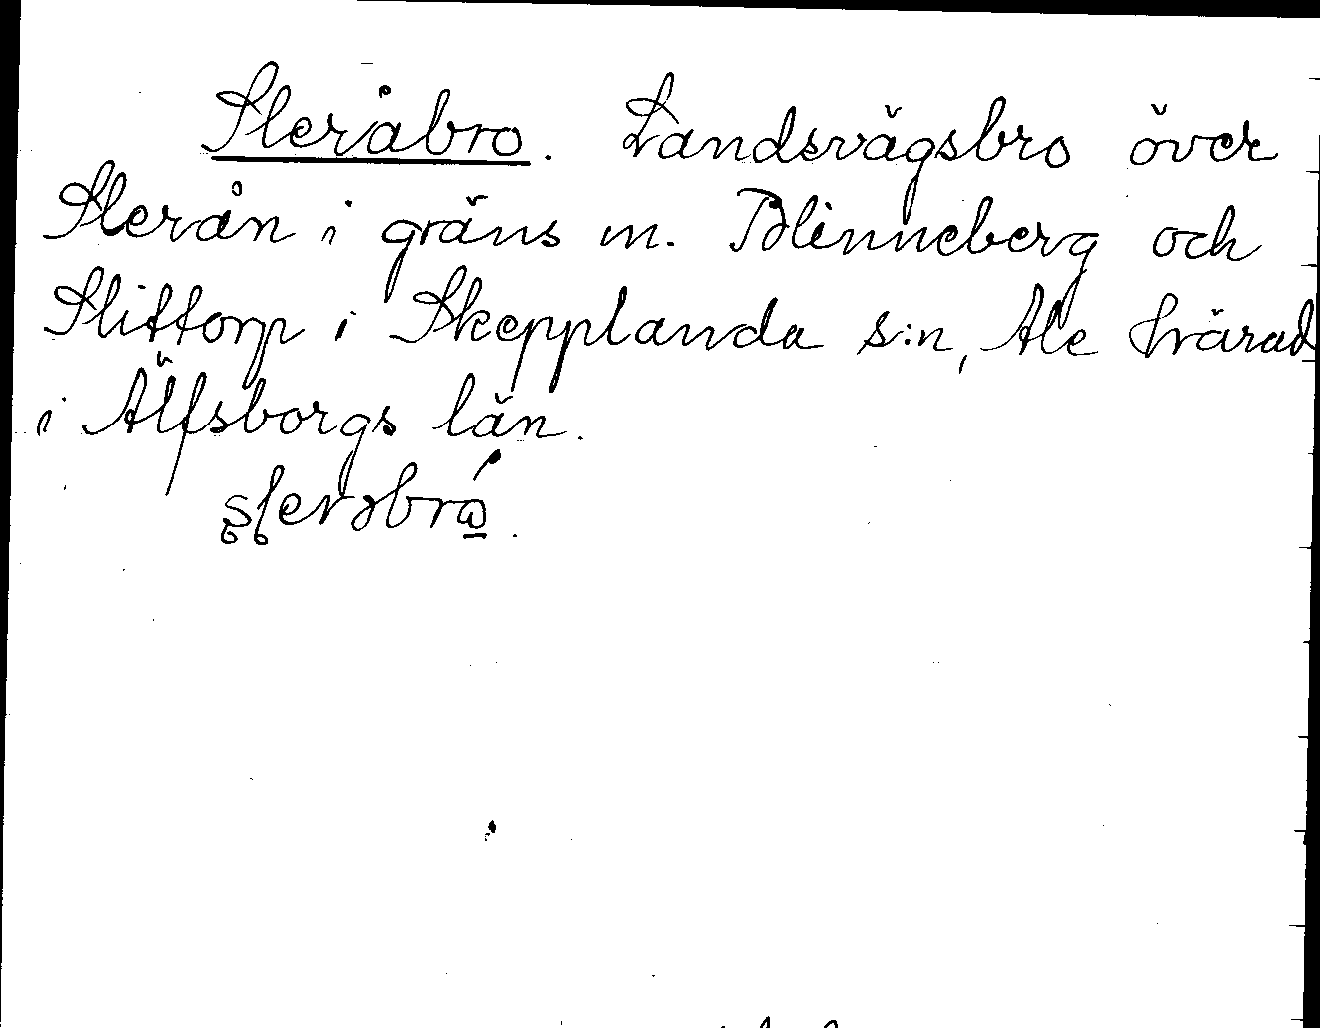 Sleråbro. Landsvägsbro över
Slerån i gräns m. Blinneberg och
Slittorp i Skepplanda s:n, Ale härad
i Älfsborgs län.